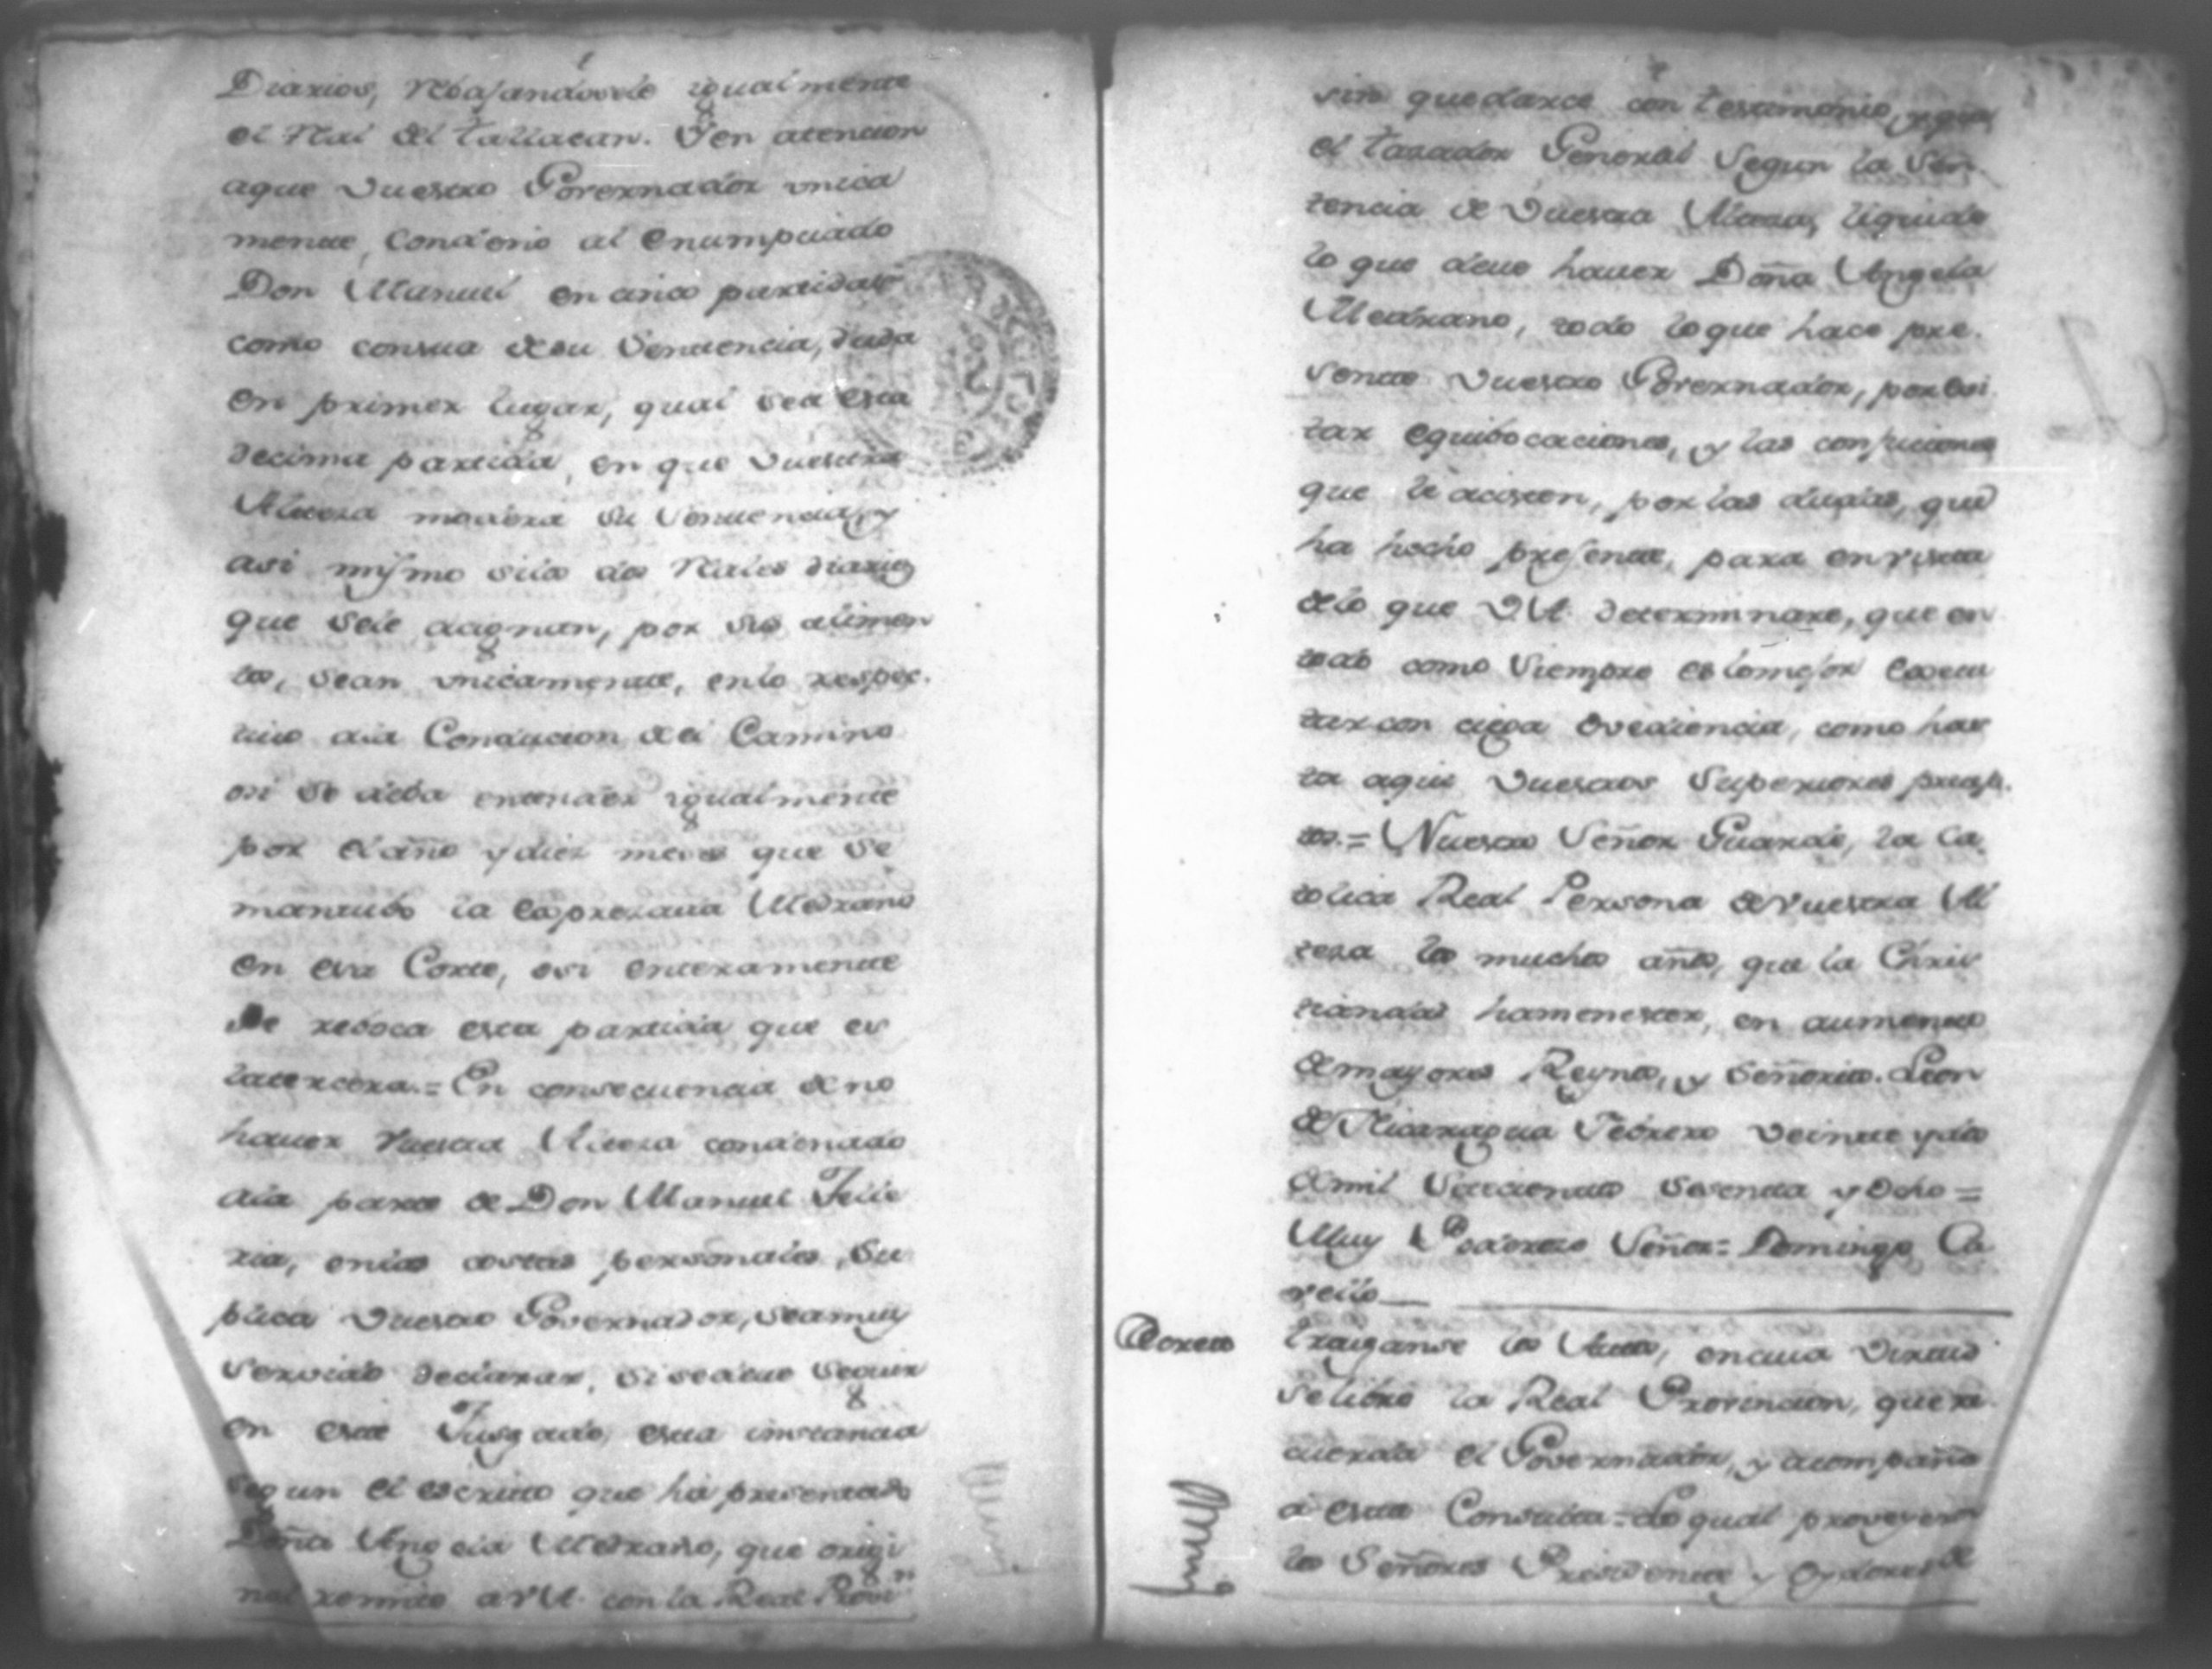 Diarios, rebajandosele igualmente
el Rial del tallacan. Yen atencion
aque Vuestro Governador unica
mente, Condeno al enumpciado
Don Manuel en cinco partidas
como consta desu Sentencia, dada
en primer lugar, qual sea esta
decima partida, en que Vuestra
Alteza modera su Sentencia, y
asi mismo silos dos Riales diarios
que sele asignan, por sus alimen
tos, sean unicamente, enlo respec-
tivo ala Conducion del Camino
osi se deba entender igualmente
por el año y diez meses que se
mantubo la expresada Medrano
en esa Corte, osi enteramente
se reboca esta partida que es
latercera.= En consecuencia de no
haver Vuestra Alteza condenado
ala parte de Don Manuel Felic
ria, enlas costas personales, Su
plica Vuestro Governador, seamuy
Servido declarar, si sedeve seguir
en este Jusgado, esta instancia
segun el escrito que ha presentado
Doña Angela Medrano, que origi
nal remito a V A. con la Real Provi.on
sin quedarce con testimonio, y que
el tasador General Segun la Sen-
tencia de Vuestra Alteza, liquide
lo que deve haver Doña Angela
Medrano, todo loque hace pre-
sente Vuestro Governador, por evi
tar equibocaciones, y las confuciones
que le acisten, por las dudas, que
ha hecho presente, para en vista
delo que V A. determinare, que en
todo como Siempre eslomejor execu
tar con ciega ovediencia, como has
ta aqui Vuestros Superiores precep-
tos.= Nuestro Señor Guarde, la Ca
tolica Real Persona de Vuestra Al
teza los muchos años, que la Chris
tiandad hamenester, en aumento
demayores Reynos, y Señorios. Leon
de Nicaragua Febrero Veinte ydos
demil Setecientos Sesenta y Ocho =
Muy Poderoso Señor= Domingo Ca
vello
Decreto
traiganse los Autos, encuia Virtud
selibro la Real Provincion, que re-
cuerda el Governador, y acompaña
á esta Consulta= Lo qual proveyeron
los Señores Presidente y Oydores de